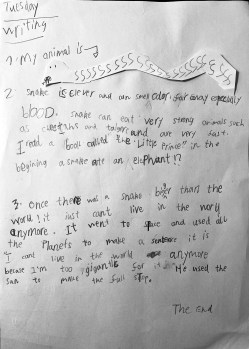 Tuesday
Writing
1. My animal is
2. Snake is clever and can smell odor far away especially
blood. snake can eat very strong animals such
as cheetahs and and are very fast.
I read a book called the "Little Prince" in the
begining a snake ate an elephant!?
3. Once there was a snake biger than the
world! it just cant live in the world
anymore. It went to space and used all
the Planets to make a sentence it is
I cant live in the world anymore
becase I'm too gigantic for it. He used the
sun to make the full stop.
The end